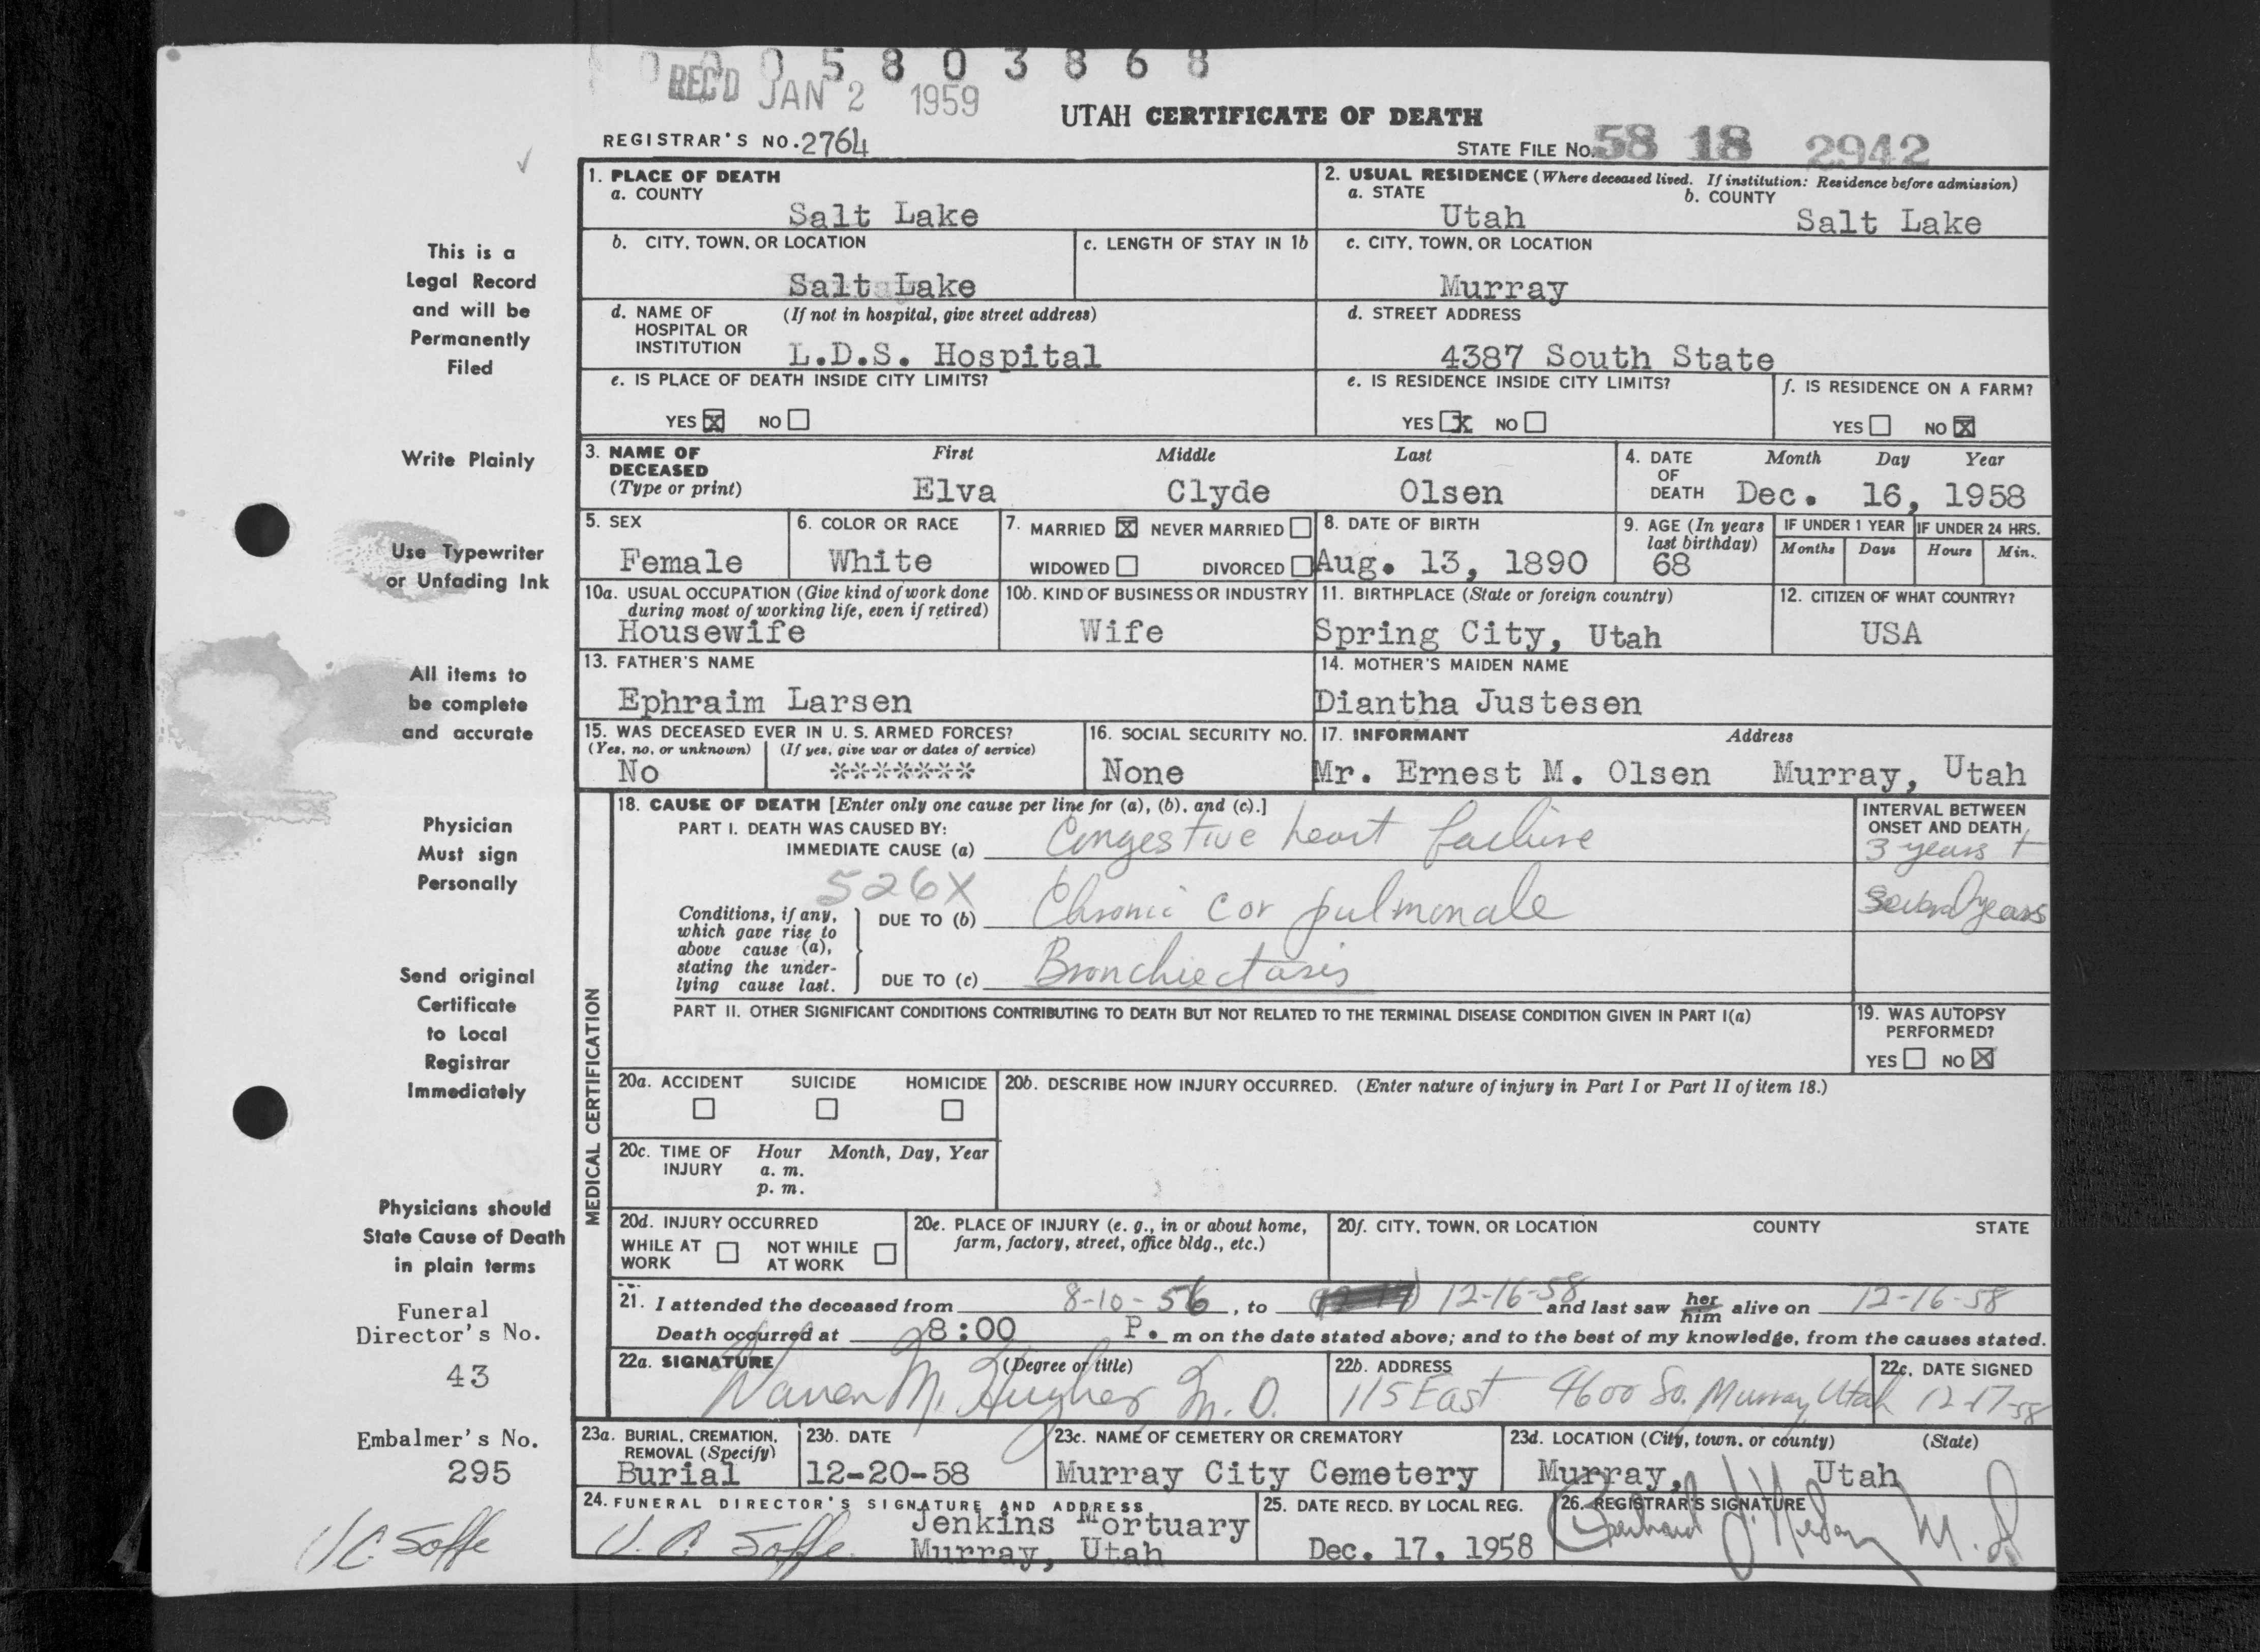 0 0 0 5 8 0 3 8 6 8
REC'D JAN 2 1959
UTAH CERTIFICATE OF DEATH
REGISTRAR'S NO. 2764
STATE FILE NO. 58 18 2942
1. PLACE OF DEATH
a. COUNTY
Salt Lake
2. USUAL RESIDENCE (Where deceased lived. If institution: Residence before admission)
a. STATE b. COUNTY
Utah Salt Lake
b. CITY, TOWN, OR LOCATION
Salt Lake
c. LENGTH OF STAY IN 1b
c. CITY, TOWN, OR LOCATION
Murray
d. NAME OF HOSPITAL OR INSTITUTION
(If not in hospital, give street address)
L.D.S. Hospital
d. STREET ADDRESS
4387 South State
e. IS PLACE OF DEATH INSIDE CITY LIMITS?
YES X NO
e. IS RESIDENCE INSIDE CITY LIMITS?
YES X NO
f. IS RESIDENCE ON A FARM?
YES NO X
3. NAME OF DECEASED
(Type or print)
First Middle Last
Elva Clyde Olsen
4. DATE OF DEATH
Month Day Year
Dec. 16, 1958
5. SEX
Female
6. COLOR OR RACE
White
7. MARRIED X NEVER MARRIED
WIDOWED DIVORCED
8. DATE OF BIRTH
Aug. 13, 1890
9. AGE (In years last birthday)
68
IF UNDER 1 YEAR
Months Days
IF UNDER 24 HRS.
Hours Min.
10a. USUAL OCCUPATION (Give kind of work done during most of working life, even if retired)
Housewife
10b. KIND OF BUSINESS OR INDUSTRY
Wife
11. BIRTHPLACE (State or foreign country)
Spring City, Utah
12. CITIZEN OF WHAT COUNTRY?
USA
13. FATHER'S NAME
Ephraim Larsen
14. MOTHER'S MAIDEN NAME
Diantha Justesen
15. WAS DECEASED EVER IN U. S. ARMED FORCES?
(Yes, no, or unknown) (If yes, give war or dates of service)
No *******
16. SOCIAL SECURITY NO.
None
17. INFORMANT Address
Mr. Ernest M. Olsen Murray, Utah
MEDICAL CERTIFICATION
18. CAUSE OF DEATH [Enter only one cause per line for (a), (b), and (c).]
PART I. DEATH WAS CAUSED BY:
IMMEDIATE CAUSE (a) Congestive heart failure
INTERVAL BETWEEN ONSET AND DEATH
3 years +
526X
Conditions, if any, which gave rise to above cause (a), stating the underlying cause last.
DUE TO (b) Chronic cor pulmonale
Several years
DUE TO (c) Bronchiectasis
PART II. OTHER SIGNIFICANT CONDITIONS CONTRIBUTING TO DEATH BUT NOT RELATED TO THE TERMINAL DISEASE CONDITION GIVEN IN PART I(a)
19. WAS AUTOPSY PERFORMED?
YES NO X
20a. ACCIDENT SUICIDE HOMICIDE
20b. DESCRIBE HOW INJURY OCCURRED. (Enter nature of injury in Part I or Part II of item 18.)
20c. TIME OF INJURY
Hour Month, Day, Year
a. m.
p. m.
20d. INJURY OCCURRED
WHILE AT WORK NOT WHILE AT WORK
20e. PLACE OF INJURY (e. g., in or about home, farm, factory, street, office bldg., etc.)
20f. CITY, TOWN, OR LOCATION COUNTY STATE
21. I attended the deceased from 8-10-56, to 12-16-58 and last saw her him alive on 12-16-58
Death occurred at 8:00 P. m on the date stated above; and to the best of my knowledge, from the causes stated.
22a. SIGNATURE (Degree or title)
Warren M. Hughes M. D.
22b. ADDRESS
115 East 4600 So. Murray Utah
22c. DATE SIGNED
12-17-58
23a. BURIAL, CREMATION, REMOVAL (Specify)
Burial
23b. DATE
12-20-58
23c. NAME OF CEMETERY OR CREMATORY
Murray City Cemetery
23d. LOCATION (City, town, or county) (State)
Murray, Utah
24. FUNERAL DIRECTOR'S SIGNATURE AND ADDRESS
Jenkins Mortuary
Soffe
Murray, Utah
25. DATE RECD. BY LOCAL REG.
Dec. 17, 1958
26. REGISTRAR'S SIGNATURE
M. D.
This is a
Legal Record
and will be
Permanently
Filed
Write Plainly
Use Typewriter
or Unfading Ink
All items to
be complete
and accurate
Physician
Must sign
Personally
Send original
Certificate
to Local
Registrar
Immediately
Physicians should
State Cause of Death
in plain terms
Funeral
Director's No.
43
Embalmer's No.
295
Soffe